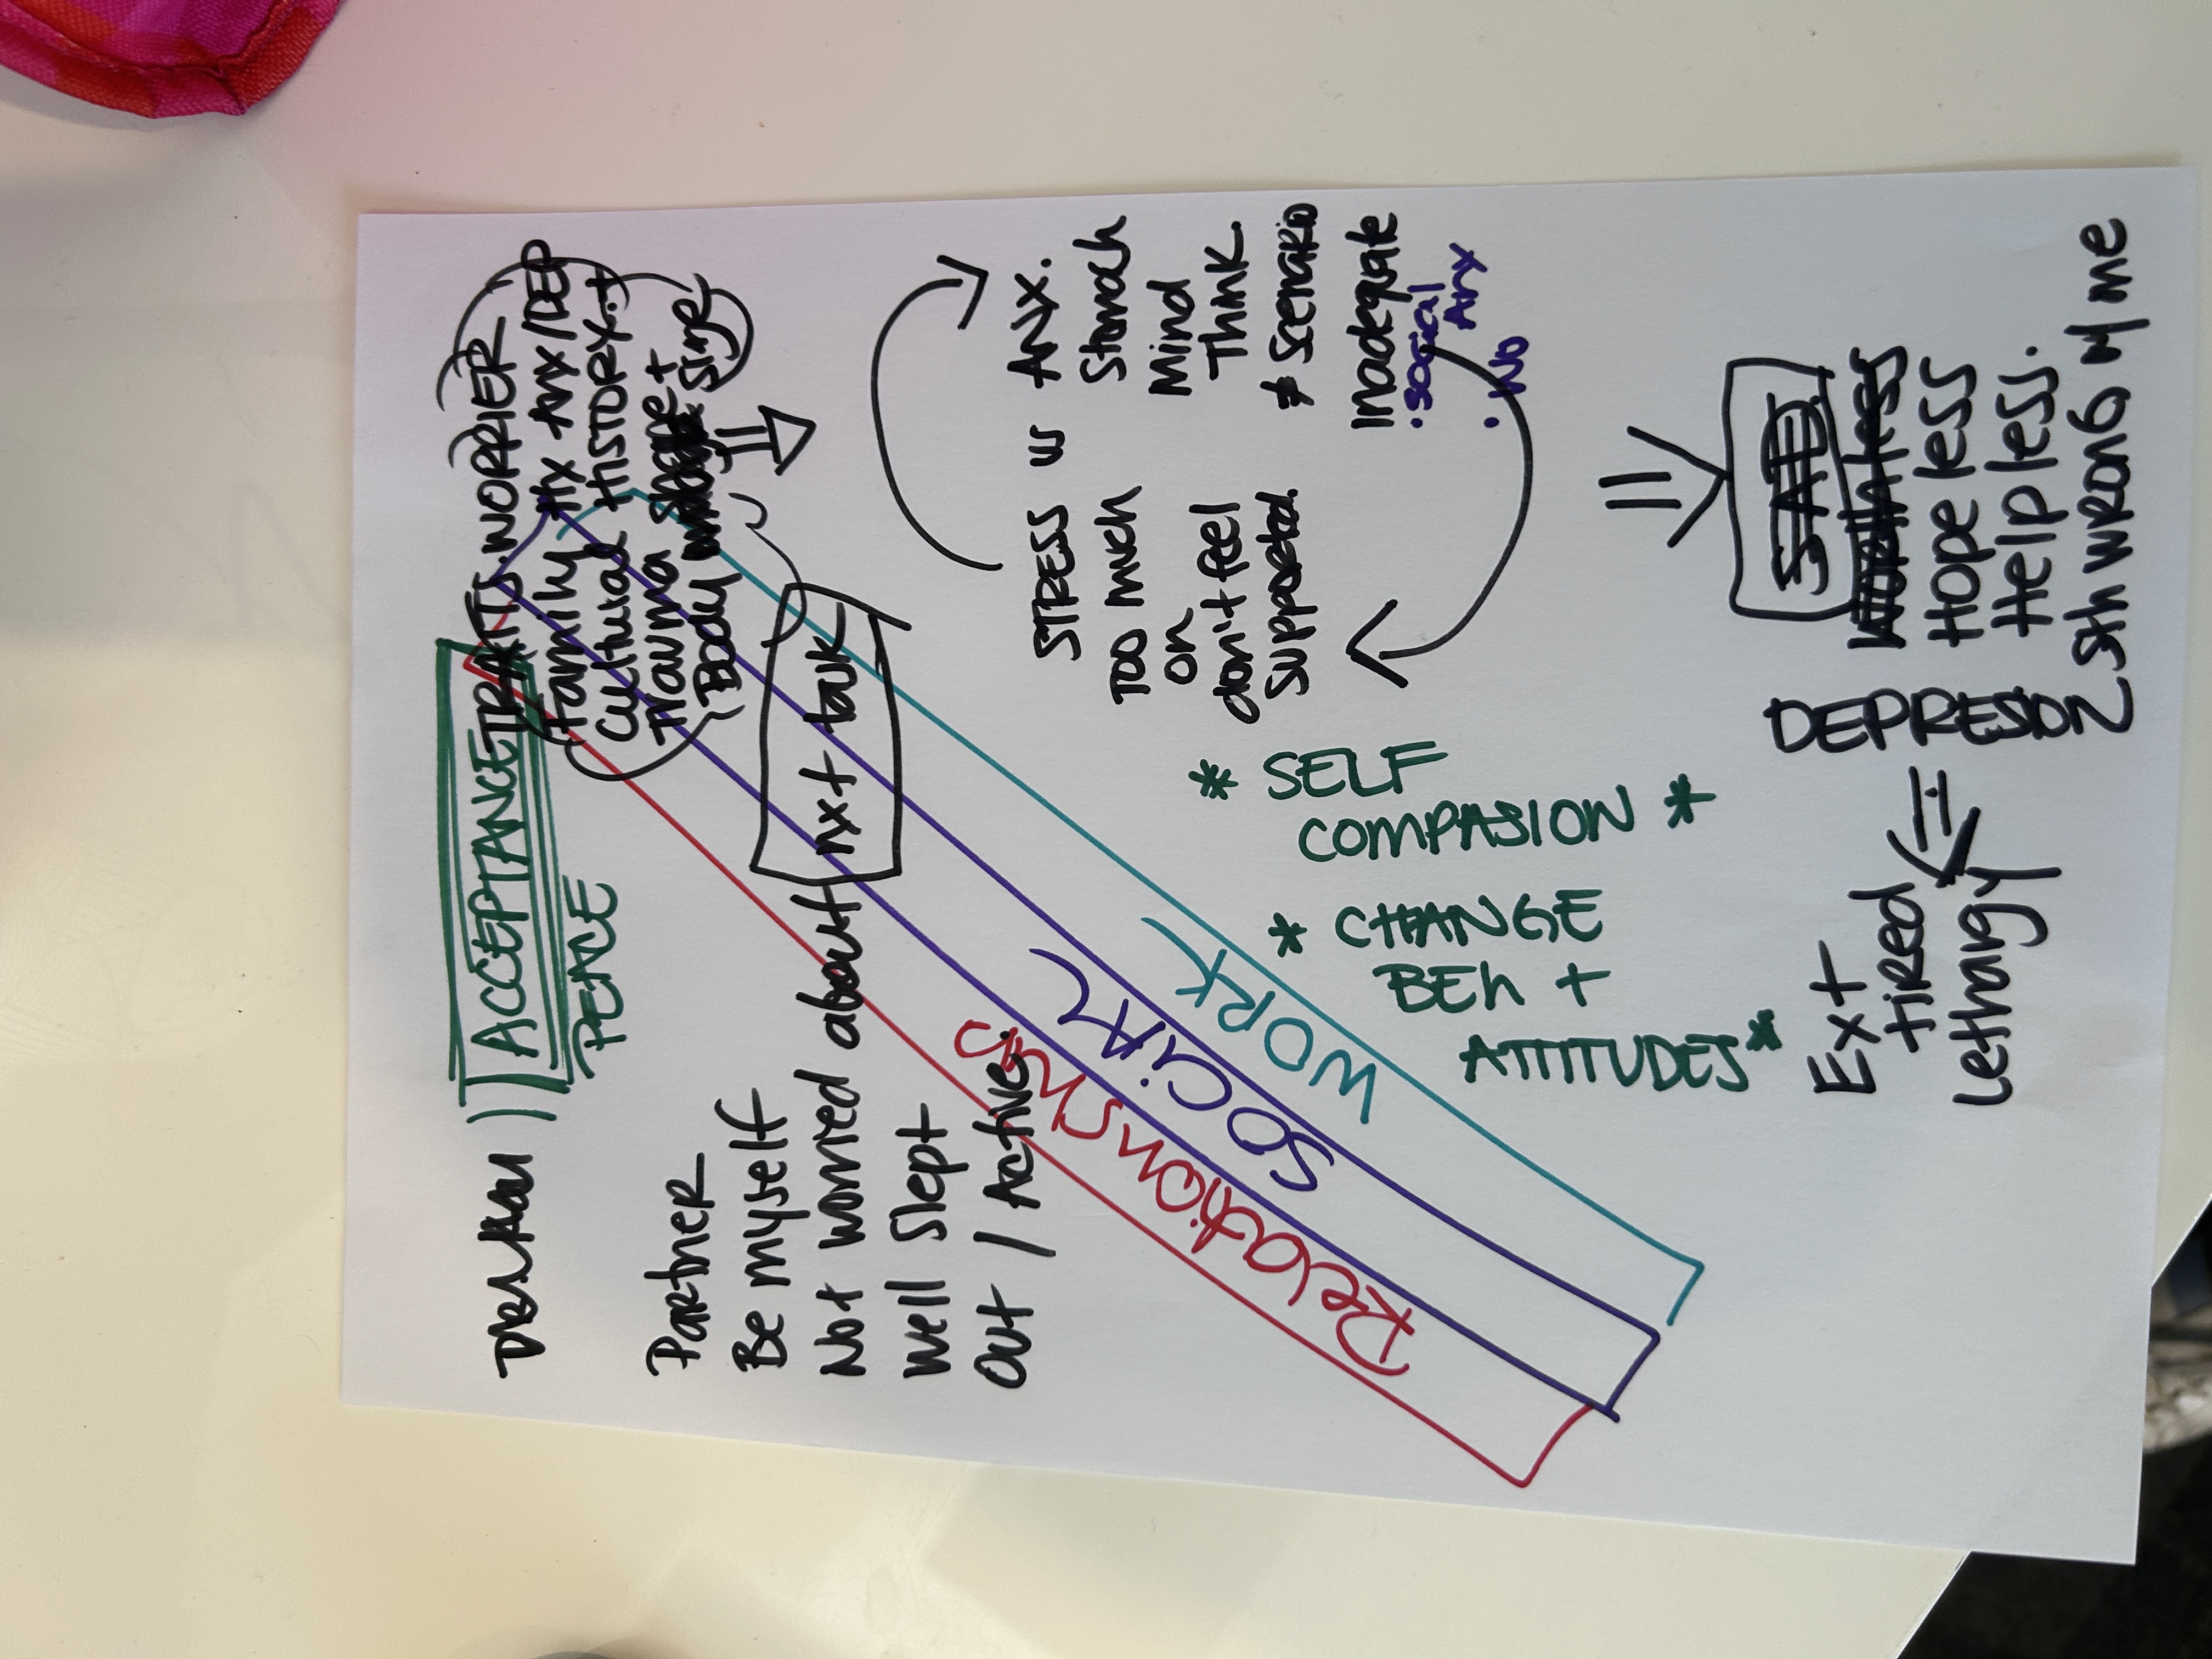 ACCEPTANCE
PEACE
Partner
Be myself
Not worried about
Well Slept
Out / Active.
nxt talk
TRAITS. WORRIER
Family Hx Anx/DEP
Cultural HISTORY.+
Trauma shape +
Body size
STRESS
Too much
on
don't feel
supported.
ANX.
Stomach
Mind
Think
≠ Scenario
Inadequate
• Social
Anx
• No
Relationships
SOCIAL
WORK
* SELF
COMPASION *
* CHANGE
BEh +
ATTITUDES*
SAD
Hope less
Help less.
Sth wrong w me
DEPRESION
Ext
tired
Lethargy